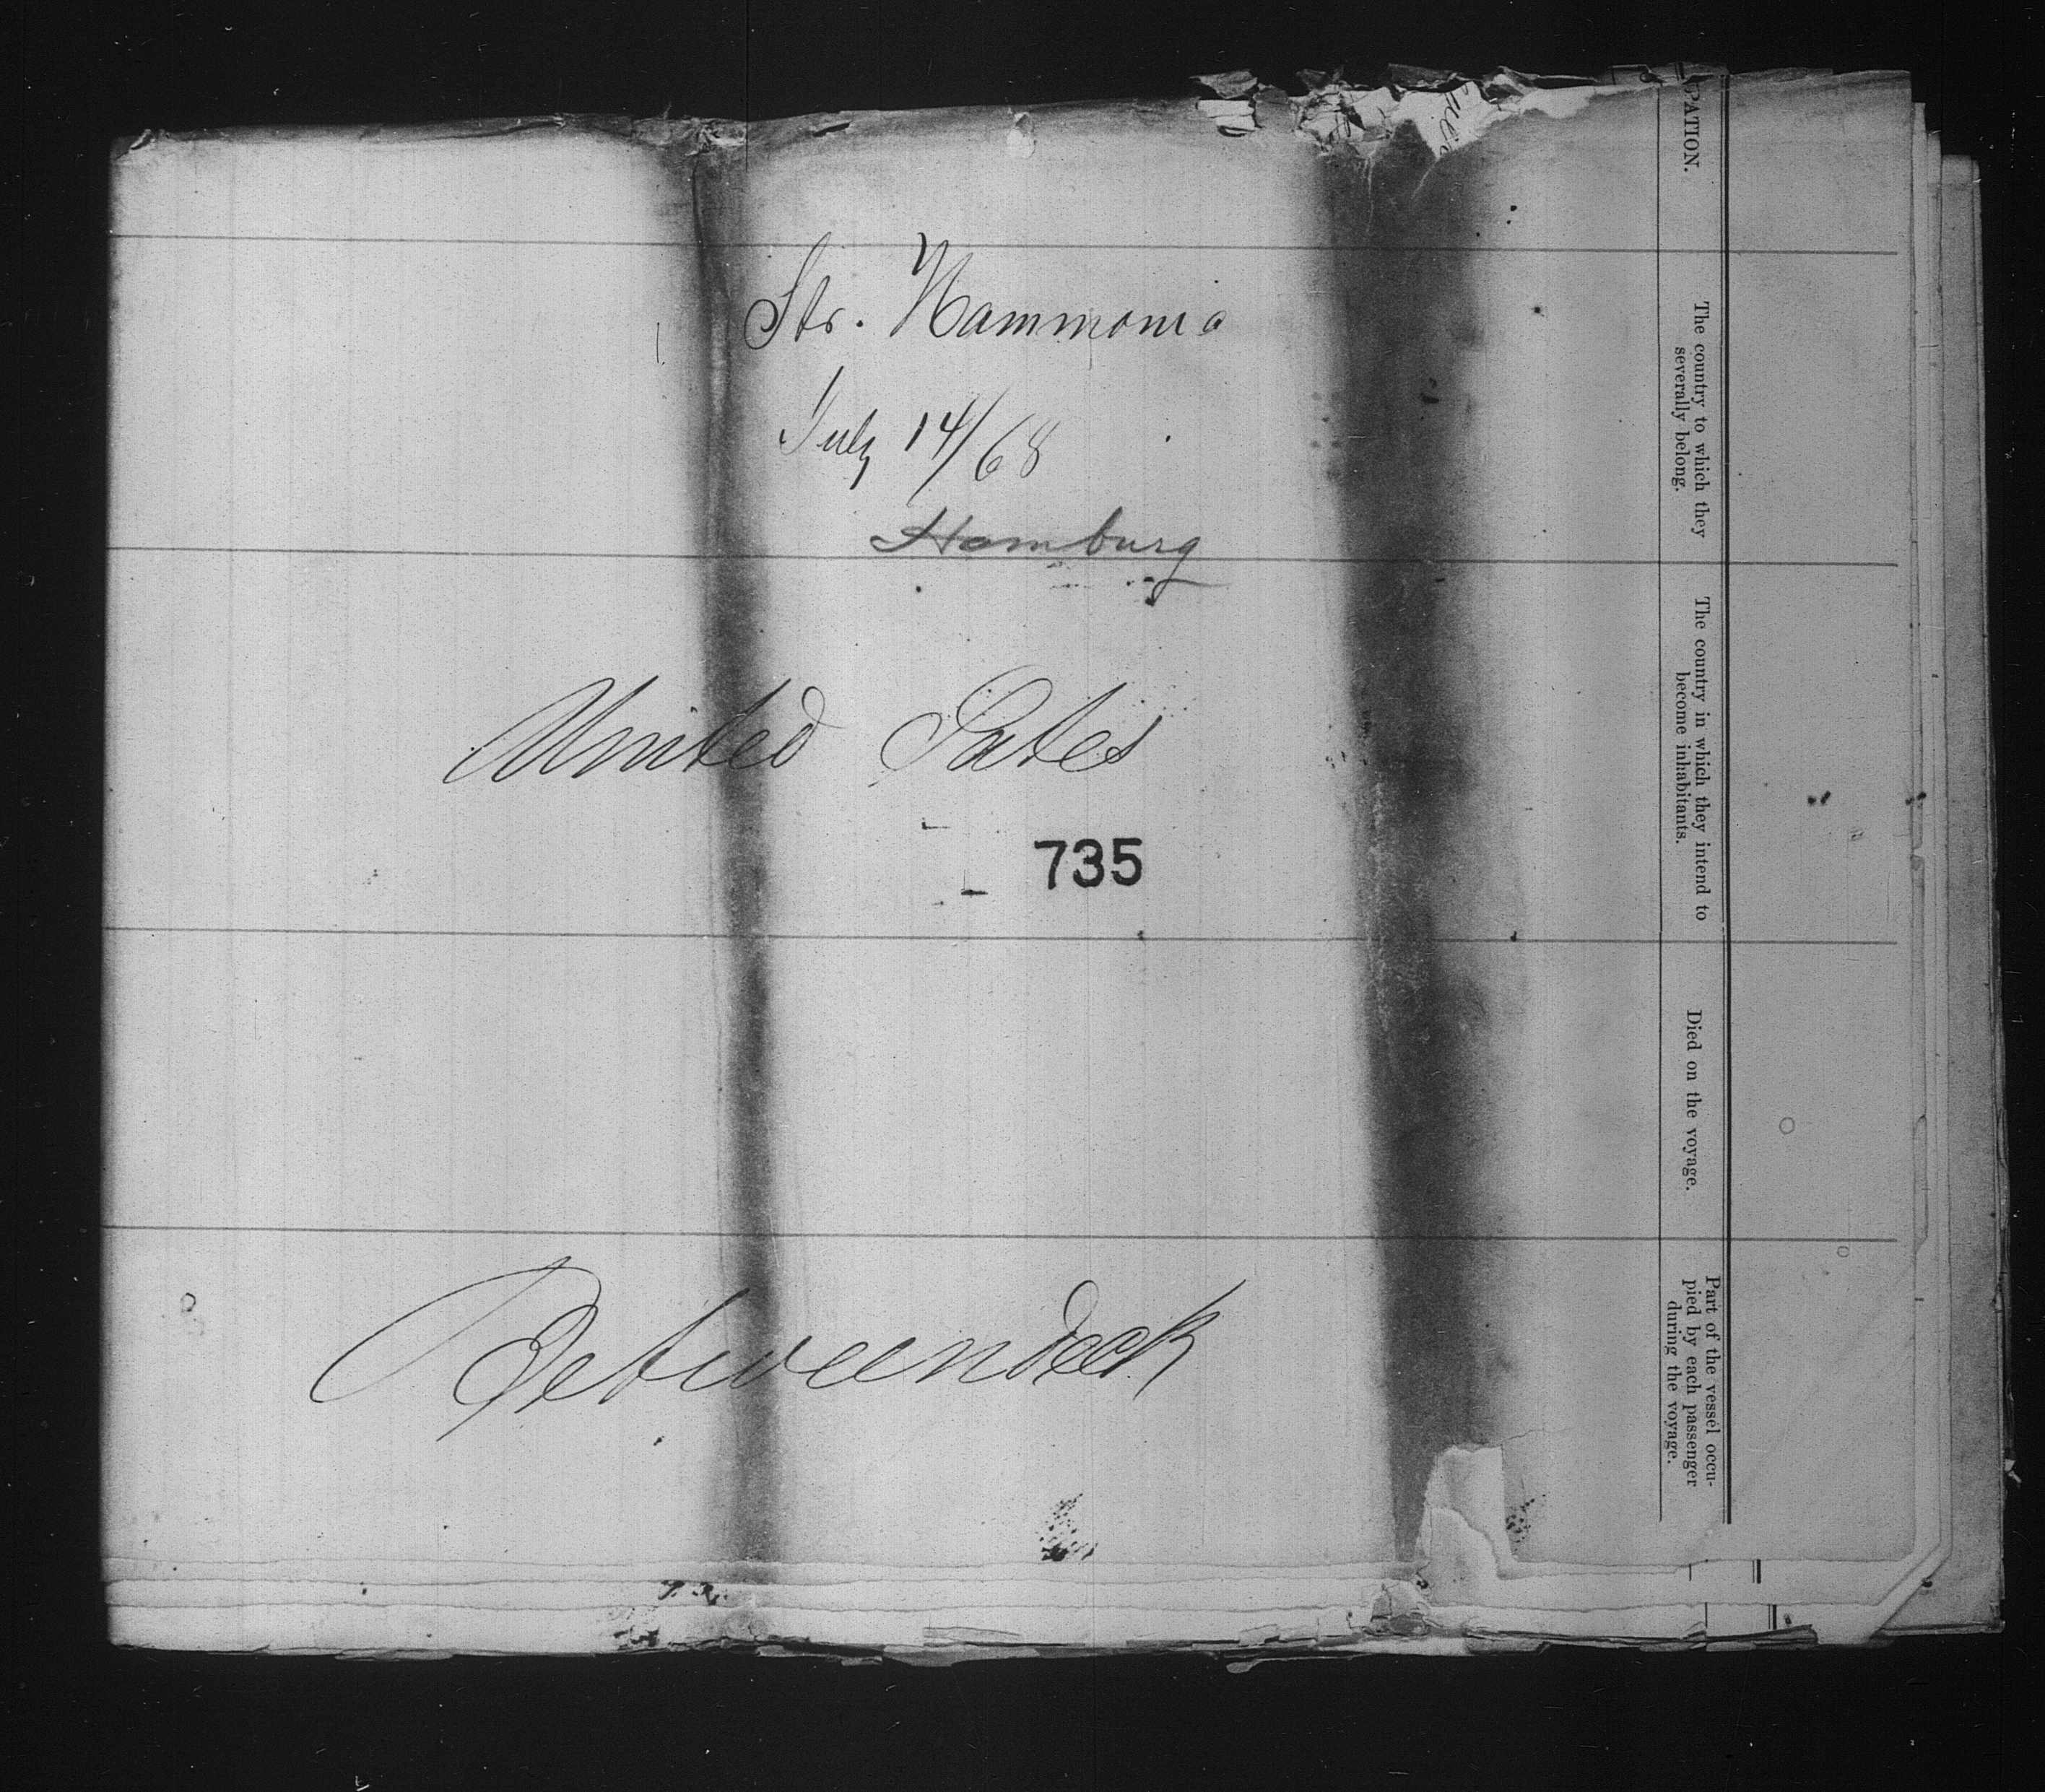 Str. Hammonia
July 14/68
Hamburg
United States
735
Betweendeck
PATION.
The country to which they
severally belong.
The country in which they intend to
become inhabitants.
Died on the voyage.
Part of the vessel occu-
pied by each passenger
during the voyage.